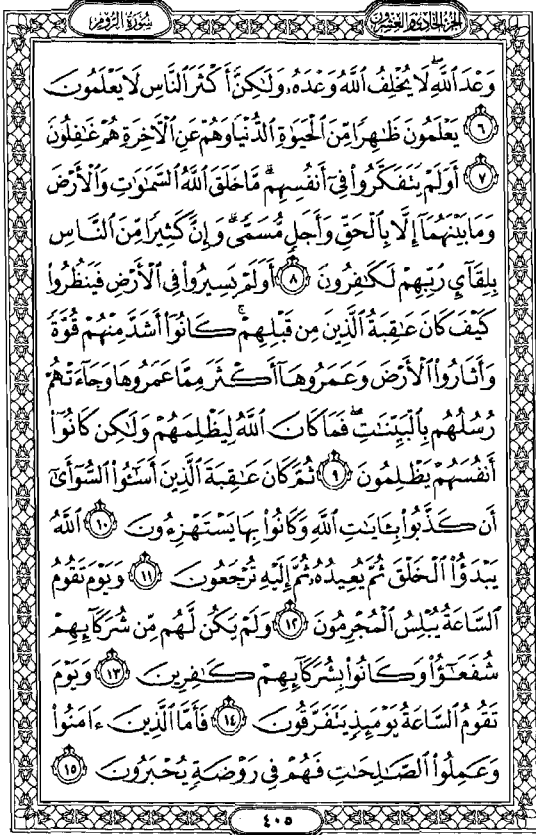 سُورَةُ الرُّومِ
الجُزءُ الحَادِي وَالعِشْرُونَ
وَعْدَ ٱللَّهِ ۖ لَا يُخْلِفُ ٱللَّهُ وَعْدَهُۥ وَلَـٰكِنَّ أَكْثَرَ ٱلنَّاسِ لَا يَعْلَمُونَ
٦ يَعْلَمُونَ ظَـٰهِرًا مِّنَ ٱلْحَيَوٰةِ ٱلدُّنْيَا وَهُمْ عَنِ ٱلْـَٔاخِرَةِ هُمْ غَـٰفِلُونَ
٧ أَوَلَمْ يَتَفَكَّرُوا۟ فِىٓ أَنفُسِهِم ۗ مَّا خَلَقَ ٱللَّهُ ٱلسَّمَـٰوَٰتِ وَٱلْأَرْضَ
وَمَا بَيْنَهُمَآ إِلَّا بِٱلْحَقِّ وَأَجَلٍ مُّسَمًّى ۗ وَإِنَّ كَثِيرًا مِّنَ ٱلنَّاسِ
بِلِقَآئِ رَبِّهِمْ لَكَـٰفِرُونَ ٨ أَوَلَمْ يَسِيرُوا۟ فِى ٱلْأَرْضِ فَيَنظُرُوا۟
كَيْفَ كَانَ عَـٰقِبَةُ ٱلَّذِينَ مِن قَبْلِهِمْ ۚ كَانُوٓا۟ أَشَدَّ مِنْهُمْ قُوَّةً
وَأَثَارُوا۟ ٱلْأَرْضَ وَعَمَرُوهَآ أَكْثَرَ مِمَّا عَمَرُوهَا وَجَآءَتْهُمْ
رُسُلُهُم بِٱلْبَيِّنَـٰتِ ۖ فَمَا كَانَ ٱللَّهُ لِيَظْلِمَهُمْ وَلَـٰكِن كَانُوٓا۟
أَنفُسَهُمْ يَظْلِمُونَ ٩ ثُمَّ كَانَ عَـٰقِبَةَ ٱلَّذِينَ أَسَـٰٓـُٔوا۟ ٱلسُّوٓأَىٰٓ
أَن كَذَّبُوا۟ بِـَٔايَـٰتِ ٱللَّهِ وَكَانُوا۟ بِهَا يَسْتَهْزِءُونَ ١٠ ٱللَّهُ
يَبْدَؤُا۟ ٱلْخَلْقَ ثُمَّ يُعِيدُهُۥ ثُمَّ إِلَيْهِ تُرْجَعُونَ ١١ وَيَوْمَ تَقُومُ
ٱلسَّاعَةُ يُبْلِسُ ٱلْمُجْرِمُونَ ١٢ وَلَمْ يَكُن لَّهُم مِّن شُرَكَآئِهِمْ
شُفَعَـٰٓؤُا۟ وَكَانُوا۟ بِشُرَكَآئِهِمْ كَـٰفِرِينَ ١٣ وَيَوْمَ
تَقُومُ ٱلسَّاعَةُ يَوْمَئِذٍ يَتَفَرَّقُونَ ١٤ فَأَمَّا ٱلَّذِينَ ءَامَنُوا۟
وَعَمِلُوا۟ ٱلصَّـٰلِحَـٰتِ فَهُمْ فِى رَوْضَةٍ يُحْبَرُونَ ١٥
٤٠٥